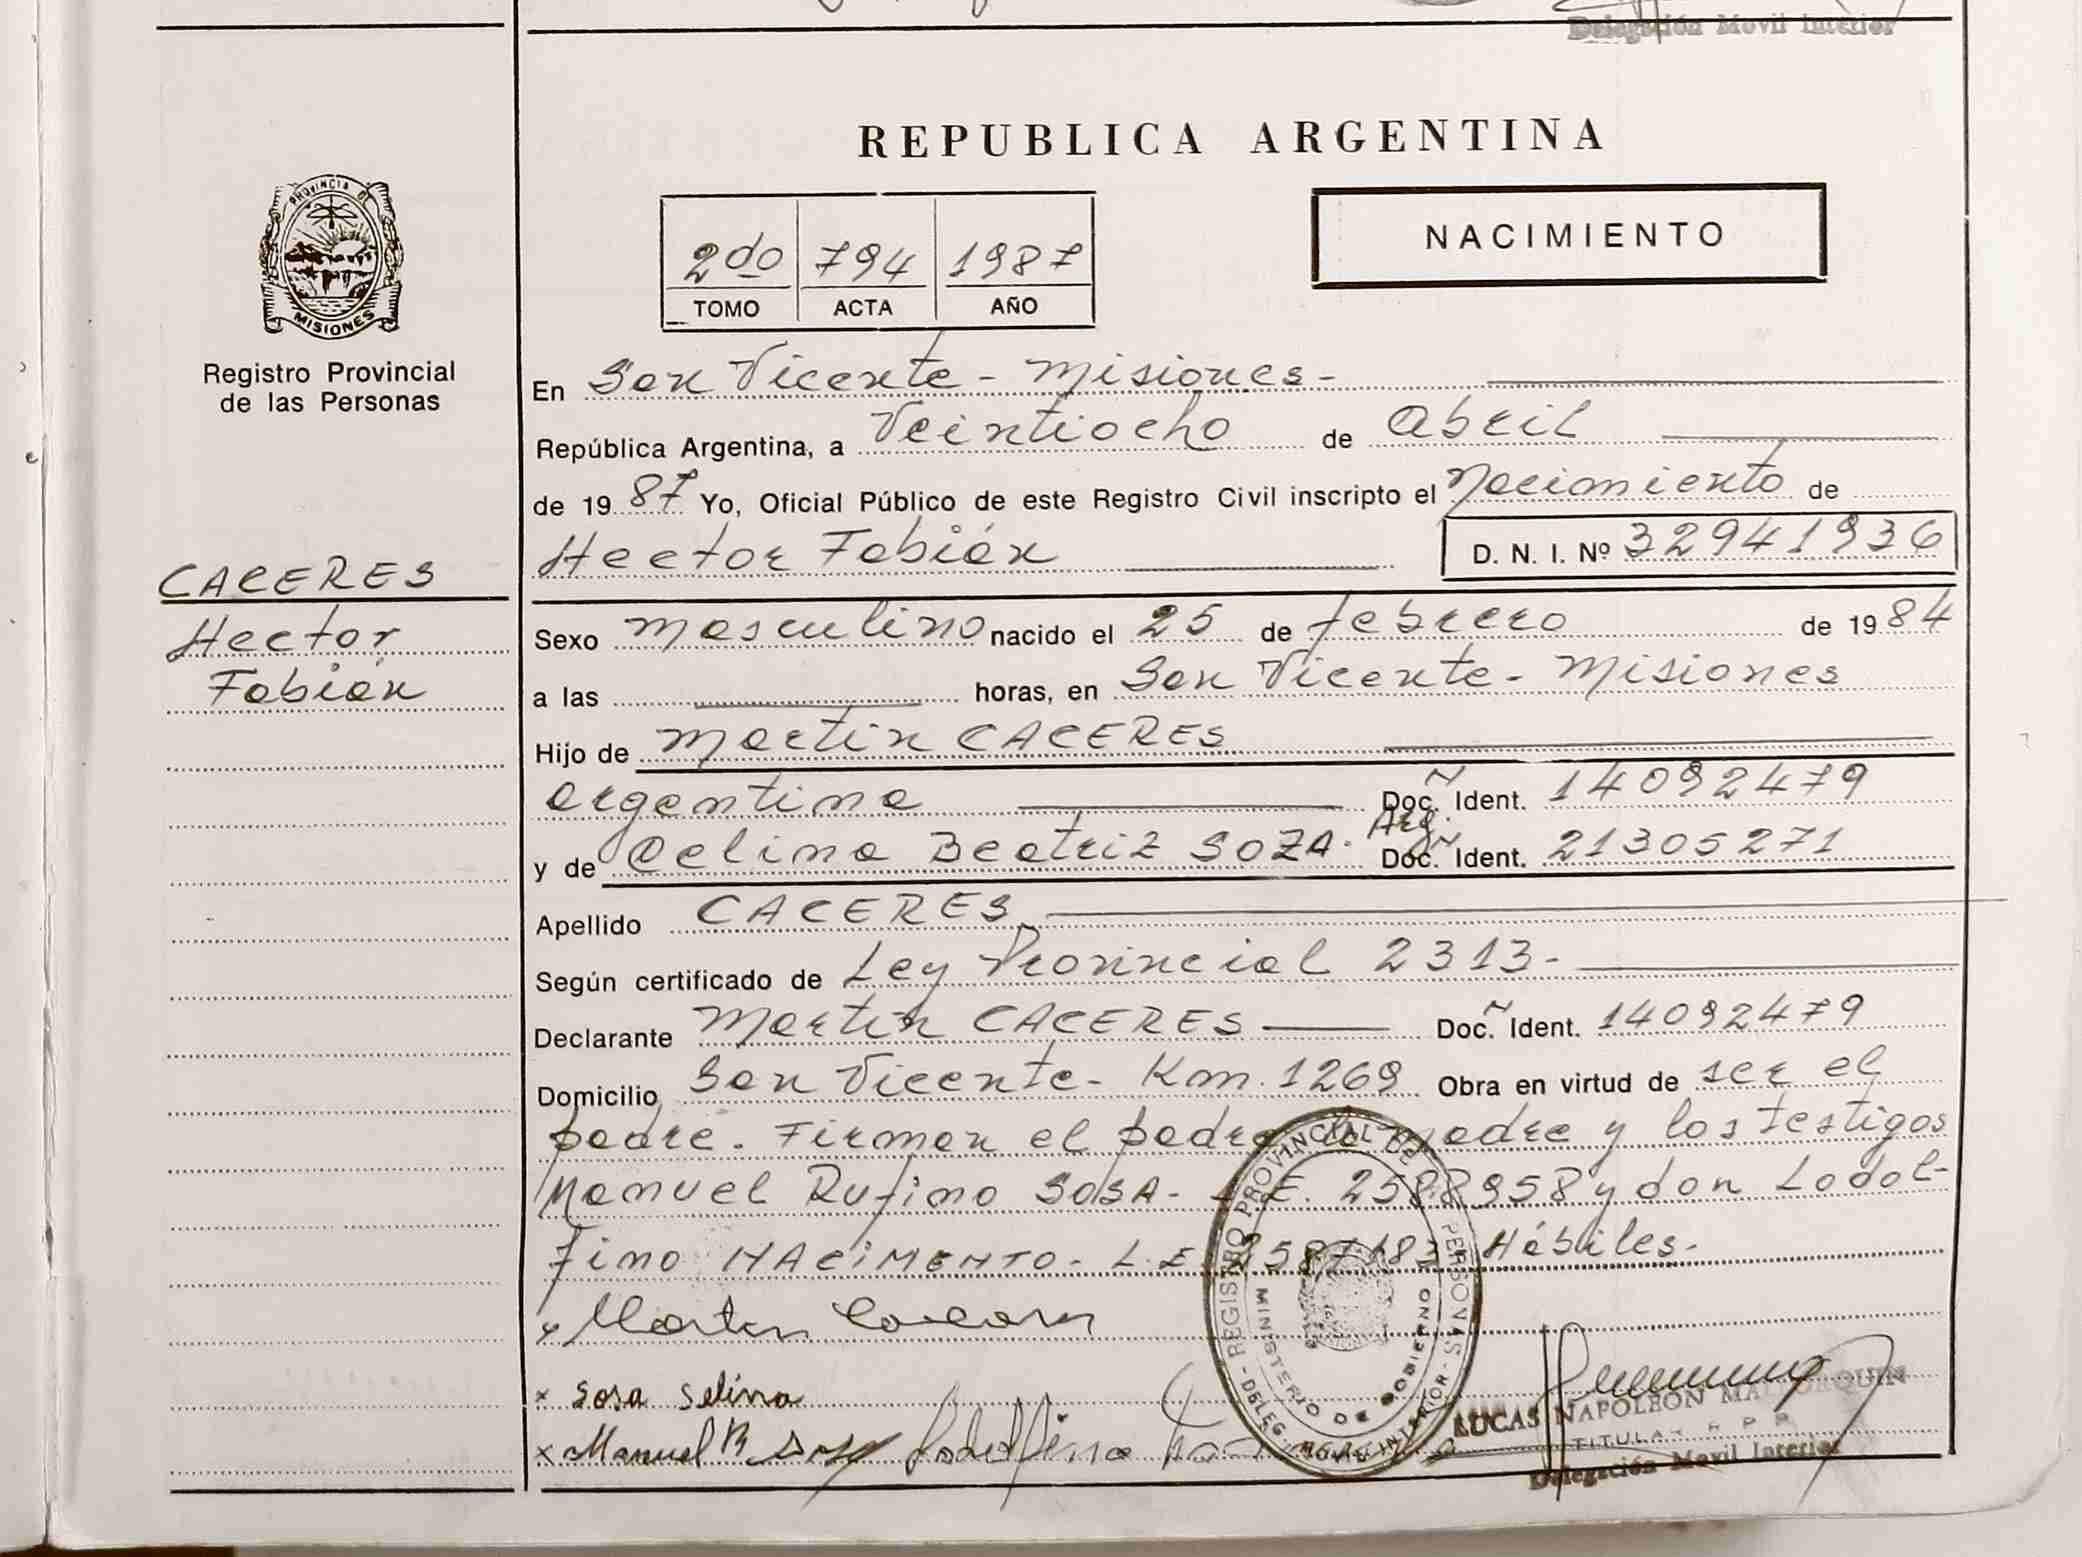 Delegación Movil Interior
REPUBLICA ARGENTINA
PROVINCIA DE
MISIONES
Registro Provincial
de las Personas
2do 794 1987
TOMO ACTA AÑO
NACIMIENTO
En San Vicente - Misiones -
República Argentina, a Veintiocho de abril
de 1987 Yo, Oficial Público de este Registro Civil inscripto el Nacimiento de
Hector Fabián D. N. I. Nº 32941936
CACERES
Hector
Fabián
Sexo masculino nacido el 25 de febrero de 1984
a las horas, en San Vicente - Misiones
Hijo de Martin CACERES
argentina Doc. Ident. 14092479
y de Celina Beatriz SOZA. Arg. Doc. Ident. 21305271
Apellido CACERES
Según certificado de Ley Provincial 2313-
Declarante Martin CACERES Doc. Ident. 14092479
Domicilio San Vicente - Km. 1269 Obra en virtud de ser el
padre. Firman el padre la madre y los testigos
Manuel Rufino SOSA - L.E. 2588958 y don Lodol-
fino NACIMENTO - L.E. 2587183 Hábiles.
x Sosa Selina
x Manuel R Sosa
REGISTRO PROVINCIAL DE PERSONAS - DELEG. MOVIL INTERIOR -
MINISTERIO DE GOBIERNO
LUCAS NAPOLEON MALLORQUIN
TITULAR R P P
Delegación Movil Interior